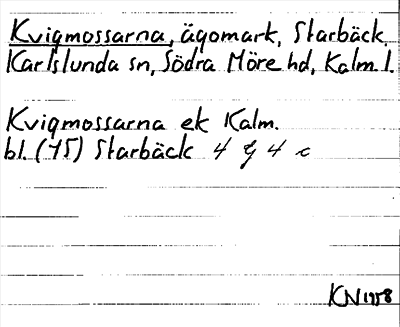 Kvigmossarna, ägomark, Starbäck,
Karlslunda sn, Södra Möre hd, Kalm l.
Kvigmossarna ek Kalm.
bl. (75) Starbäck 4 g 4 c
KN 1958